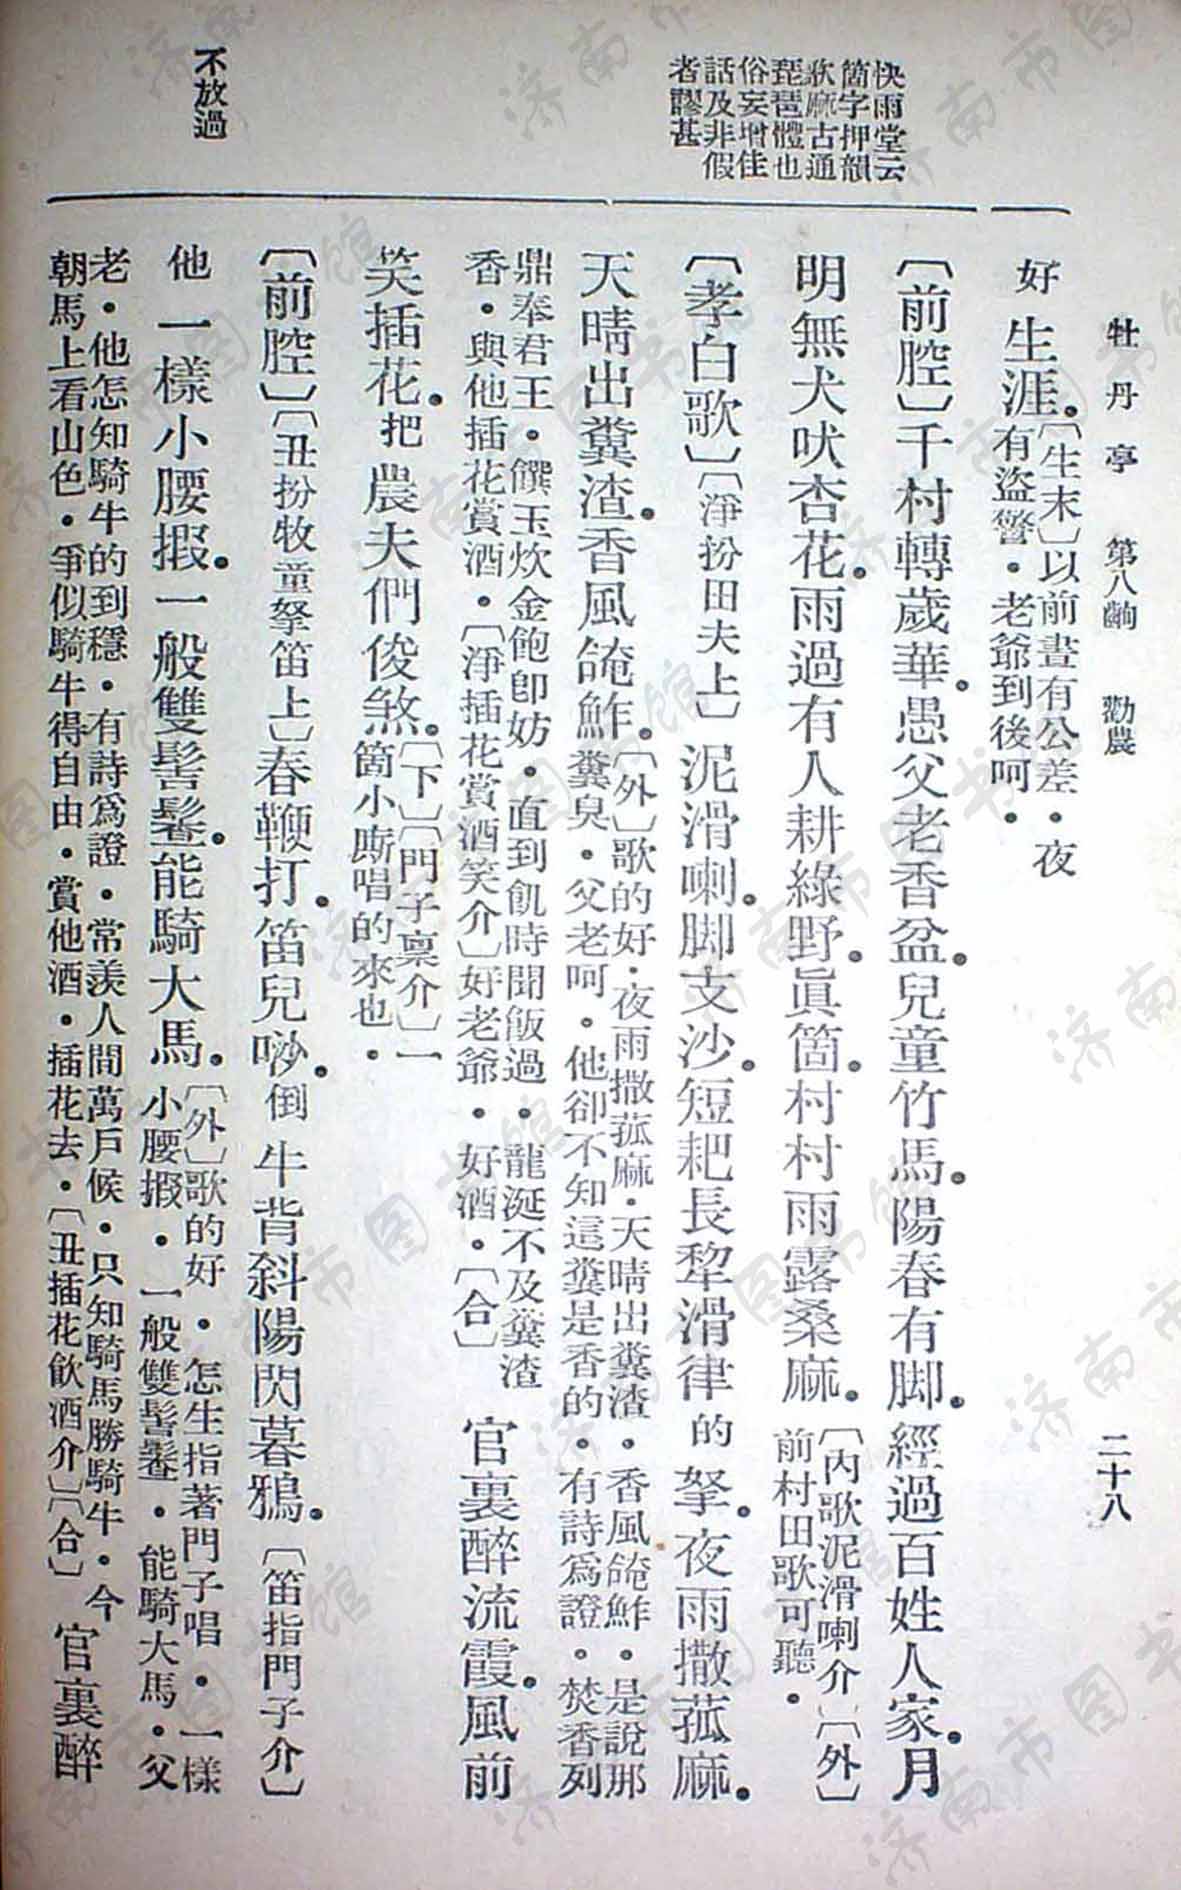 牡丹亭 第八齣 勸農 二十八
快雨堂云
箇字押韻
歌麻古通
琵琶體也
俗妄增佳
話及非假
者謬甚
不放過
好生涯．〔生末〕以前晝有公差．夜
有盜警．老爺到後呵．
〔前腔〕千村轉歲華．愚父老香盆．兒童竹馬．陽春有脚．經過百姓人家．月
明無犬吠杏花．雨過有人耕綠野．眞箇．村村雨露桑麻．〔內歌泥滑喇介〕〔外〕
前村田歌可聽．
〔孝白歌〕〔淨扮田夫上〕泥滑喇．脚支沙．短耙長犂滑律的拏．夜雨撒菰麻．
天晴出糞渣．香風䭕鮓．〔外〕歌的好．夜雨撒菰麻．天晴出糞渣．香風䭕鮓．是說那
糞臭．父老呵．他卻不知這糞是香的．有詩爲證．焚香列
鼎奉君王．饌玉炊金飽卽妨．直到飢時聞飯過．龍涎不及糞渣
香．與他插花賞酒．〔淨插花賞酒笑介〕好老爺．好酒．〔合〕官裏醉流霞．風前
笑插花．把農夫們俊煞．〔下〕〔門子稟介〕一
箇小廝唱的來也．
〔前腔〕〔丑扮牧童拏笛上〕春鞭打．笛兒唦．倒牛背斜陽閃暮鴉．〔笛指門子介〕
他一樣小腰𢱉．一般雙髻鬖．能騎大馬．〔外〕歌的好．怎生指著門子唱．一樣
小腰𢱉．一般雙髻鬖．能騎大馬．父
老．他怎知騎牛的到穩．有詩爲證．常羨人間萬戶候．只知騎馬勝騎牛．今
朝馬上看山色．爭似騎牛得自由．賞他酒．插花去．〔丑插花飲酒介〕〔合〕官裏醉
济南市图书馆